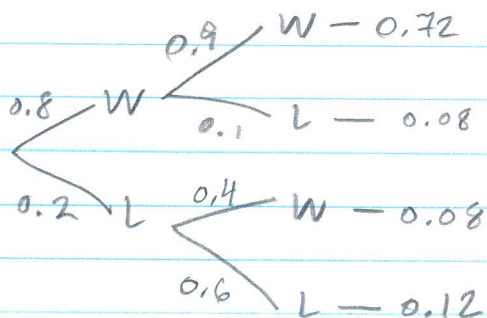 0.9 W — 0.72
0.8 W
0.1 L — 0.08
0.2 L 0.4 W — 0.08
0.6 L — 0.12